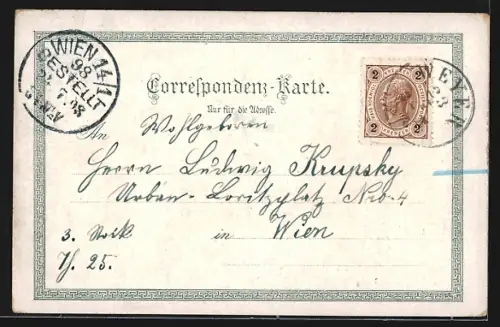 WIEN 14/1
98
BESTELLT
Correspondenz-Karte.
Nur für die Adresse.
2 2
2 2
WEYER
23
An Wohlgeboren
Herrn Ludwig Krupsky
Urban-Loritzplatz Nro 4
3. Stock in Wien
Th. 25.